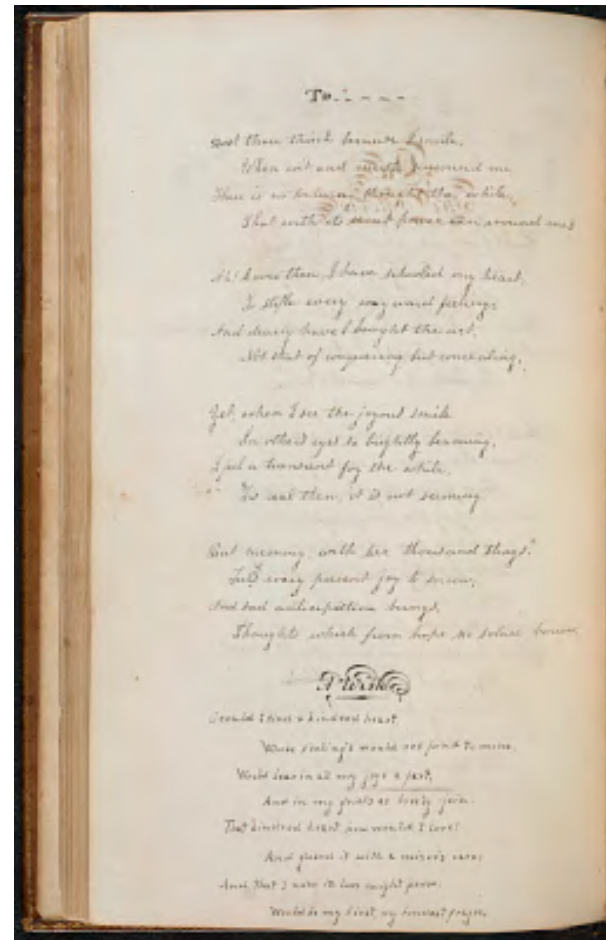 To - - - -
thou think because I smile,
When wit and mirth surround me
There is no the while,
That with its secret power can around me
Ah! know then, I have schooled my heart,
To stifle every wayward feeling;
And dearly have I bought the art,
Not that of conquering but concealing.
Yet, when I see the joyous smile
In others eyes so brightly beaming,
I feel a transient joy the while,
'Tis real then, it is not seeming.
But memory, with her thousand
every present joy to sorrow,
And sad anticipation brings,
Thoughts which from hope no solace borrow.
A Wish
Could I find a kindred heart
Whose feelings would respond to mine,
Would bear in all my joys a part,
And in my griefs as truly join.
That kindred heart how would I love!
And guard it with a miser's care;
And that I mine might prove
Would be my first, my fondest prayer.